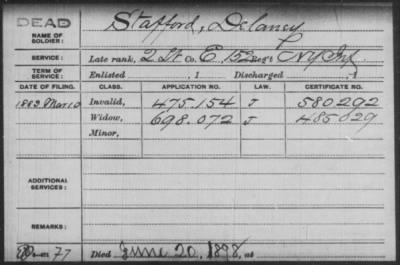 DEAD
NAME OF SOLDIER: Stafford, Delaney
SERVICE: Late rank, 2 Lt Co. E, 152 Reg't NY Inf
TERM OF SERVICE: Enlisted , 1 Discharged , 1
DATE OF FILING. CLASS. APPLICATION NO. LAW. CERTIFICATE NO.
1883 Mar 10 Invalid, 475.154 J 580292
Widow, 698.072 J 485029
Minor,
ADDITIONAL SERVICES:
REMARKS:
77 Died June 20, 1898, at